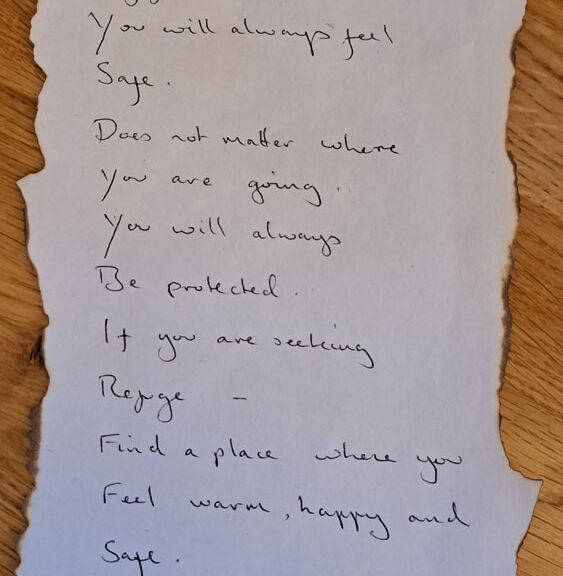 You will always feel
Safe.
Does not matter where
You are going.
You will always
Be protected.
If you are seeking
Refuge -
Find a place where you
Feel warm, happy and
Safe.